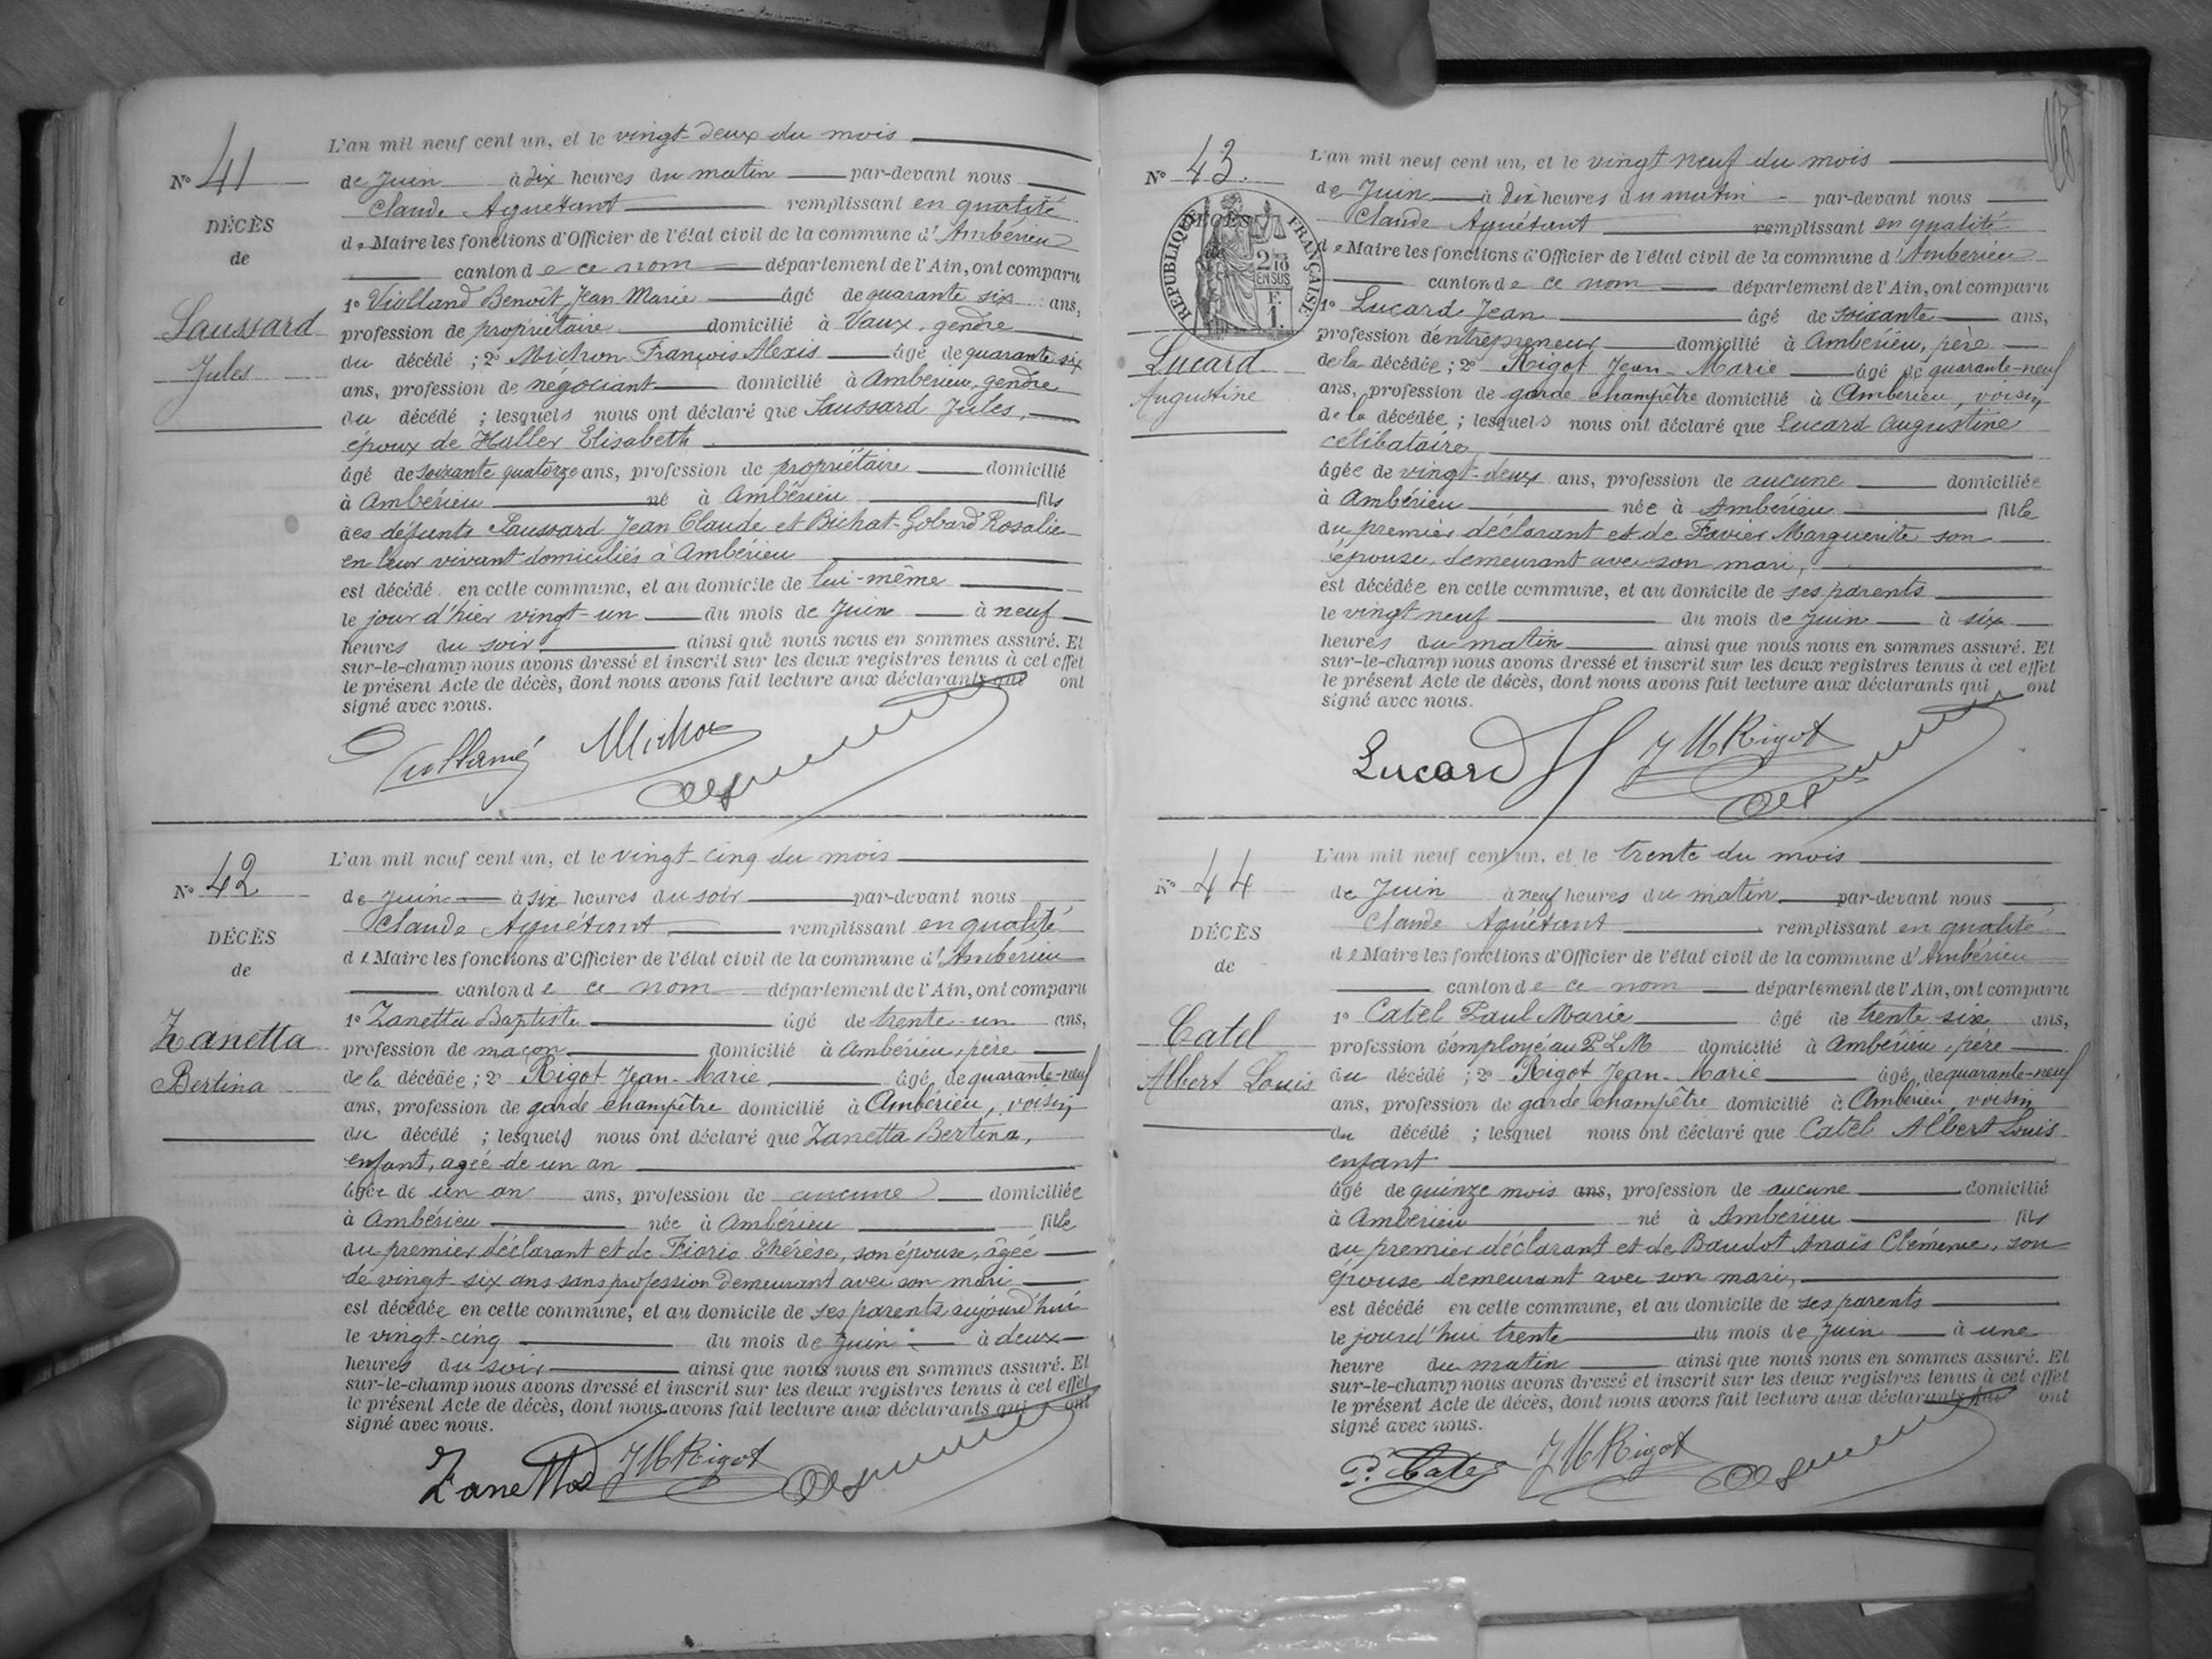 N° 41
DÉCÈS
de
Saussard
Jules
L'an mil neuf cent un, et le vingt-deux du mois
de Juin à dix heures du matin par-devant nous
Claude Aguétant remplissant en qualité
de Maire les fonctions d'Officier de l'état civil de la commune d'Ambérieu
canton de ce nom département de l'Ain, ont comparu
1° Violland Benoît Jean Marie âgé de quarante six ans,
profession de propriétaire domicilié à Vaux, gendre
du décédé ; 2° Michon François Alexis âgé de quarante six
ans, profession de négociant domicilié à Ambérieu, gendre
du décédé ; lesquels nous ont déclaré que Saussard Jules,
époux de Haller Elisabeth
âgé de soixante quatorze ans, profession de propriétaire domicilié
à Ambérieu né à Ambérieu fils
des défunts Saussard Jean Claude et Bichat-Gobard Rosalie
en leur vivant domiciliés à Ambérieu
est décédé en cette commune, et au domicile de lui-même
le jour d'hier vingt-un du mois de Juin à neuf
heures du soir ainsi que nous nous en sommes assuré. Et
sur-le-champ nous avons dressé et inscrit sur les deux registres tenus à cet effet
le présent Acte de décès, dont nous avons fait lecture aux déclarants qui ont
signé avec nous.
Michon
N° 42
DÉCÈS
de
Zanetta
Bertina
L'an mil neuf cent un, et le vingt-cinq du mois
de Juin à six heures du soir par-devant nous
Claude Aguétant remplissant en qualité
de Maire les fonctions d'Officier de l'état civil de la commune d'Ambérieu
canton de ce nom département de l'Ain, ont comparu
1° Zanetta Baptiste âgé de trente-un ans,
profession de maçon domicilié à Ambérieu, père
de la décédée ; 2° Rigot Jean-Marie âgé de quarante-neuf
ans, profession de garde champêtre domicilié à Ambérieu, voisin
du décédé ; lesquels nous ont déclaré que Zanetta Bertina,
enfant, agée de un an
âgée de un an ans, profession de aucune domiciliée
à Ambérieu née à Ambérieu fille
du premier déclarant et de Fiorio Thérèse, son épouse, âgée
de vingt-six ans sans profession demeurant avec son mari
est décédée en cette commune, et au domicile de ses parents, aujourd'hui
le vingt-cinq du mois de Juin à deux
heures du soir ainsi que nous nous en sommes assuré. Et
sur-le-champ nous avons dressé et inscrit sur les deux registres tenus à cet effet
le présent Acte de décès, dont nous avons fait lecture aux déclarants qui ont
signé avec nous.
Zanetta JM Rigot
N° 43.
DÉCÈS
de
RÉPUBLIQUE FRANÇAISE
2/10
EN SUS
F.
1.
Lucard
Augustine
L'an mil neuf cent un, et le vingt neuf du mois
de Juin à dix heures du matin par-devant nous
Claude Aguétant remplissant en qualité
de Maire les fonctions d'Officier de l'état civil de la commune d'Ambérieu
canton de ce nom département de l'Ain, ont comparu
1° Lucard Jean âgé de soixante ans,
profession d'entrepreneur domicilié à Ambérieu, père
de la décédée ; 2° Rigot Jean-Marie âgé de quarante-neuf
ans, profession de garde champêtre domicilié à Ambérieu, voisin
de la décédée ; lesquels nous ont déclaré que Lucard Augustine
célibataire
âgée de vingt-deux ans, profession de aucune domiciliée
à Ambérieu née à Ambérieu fille
du premier déclarant et de Favier Marguerite son
épouse, demeurant avec son mari,
est décédée en cette commune, et au domicile de ses parents
le vingt neuf du mois de Juin à six
heures du matin ainsi que nous nous en sommes assuré. Et
sur-le-champ nous avons dressé et inscrit sur les deux registres tenus à cet effet
le présent Acte de décès, dont nous avons fait lecture aux déclarants qui ont
signé avec nous.
Lucard JM Rigot
N° 44
DÉCÈS
de
Catel
Albert Louis
L'an mil neuf cent un, et le trente du mois
de Juin à neuf heures du matin par-devant nous
Claude Aguétant remplissant en qualité
de Maire les fonctions d'Officier de l'état civil de la commune d'Ambérieu
canton de ce nom département de l'Ain, ont comparu
1° Catel Paul Marie âgé de trente six ans,
profession d'employé au P.L.M domicilié à Ambérieu, père
du décédé ; 2° Rigot Jean-Marie âgé de quarante-neuf
ans, profession de garde champêtre domicilié à Ambérieu, voisin
du décédé ; lesquel nous ont déclaré que Catel Albert Louis
enfant
âgé de quinze mois ans, profession de aucune domicilié
à Ambérieu né à Ambérieu fils
du premier déclarant et de Baudot Anaïs Clémence, son
épouse demeurant avec son mari,
est décédé en cette commune, et au domicile de ses parents
le jourd'hui trente du mois de Juin à une
heure du matin ainsi que nous nous en sommes assuré. Et
sur-le-champ nous avons dressé et inscrit sur les deux registres tenus à cet effet
le présent Acte de décès, dont nous avons fait lecture aux déclarants qui ont
signé avec nous.
P. Catel JM Rigot